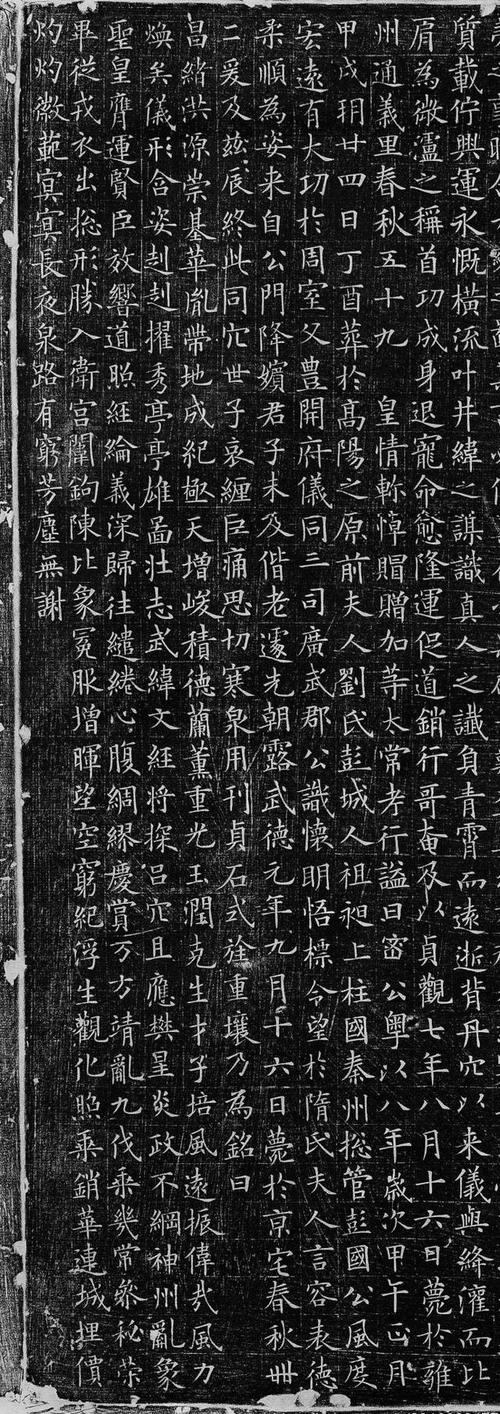 質載佇興運永慨橫流叶井緯之謀識真人之讖負青霄而遠逝背丹穴以来儀與絳灌而比
肩為微瀘之稱首功成身退寵命愈隆運促道銷行哥奄及以貞觀七年八月十六日薨於雍
州通義里春秋五十九 皇情軫悼賵贈加等太常考行謚曰密公粵以八年歲次甲午正月
甲戌玥廿四日丁酉葬於高陽之原前夫人劉氏彭城人祖昶上柱國秦州揔管彭國公風度
宏遠有大功於周室父豊開府儀同三司廣武郡公識懷明悟標令望於隋氏夫人言容表德
柔順為姿来自公門降嬪君子未及偕老遽先朝露武德元年九月十六日薨於京宅春秋卌
二爰及茲辰終此同穴世子哀纏巨痛思切寒泉用刊貞石式旌重壤乃為銘曰
昌緒洪源崇基華胤帶地成紀極天增峻積德蘭薰重光玉潤克生才子培風遠振偉哉風力
煥矣儀形含姿赳赳擢秀亭亭雄啚壯志武緯文經将探呂穴且應樊星炎政不綱神州亂象
聖皇膺運賢臣放響道照經綸義深歸往繾綣心腹綢繆慶賞万方靖亂九伐乘幾常叅秘榮
畢從戎衣出揔形勝入衛宮闈鉤陳比象冕服增暉望空窮紀浮生觀化照乘銷華連城埋價
灼灼徽範冥冥長夜泉路有窮芳塵無謝